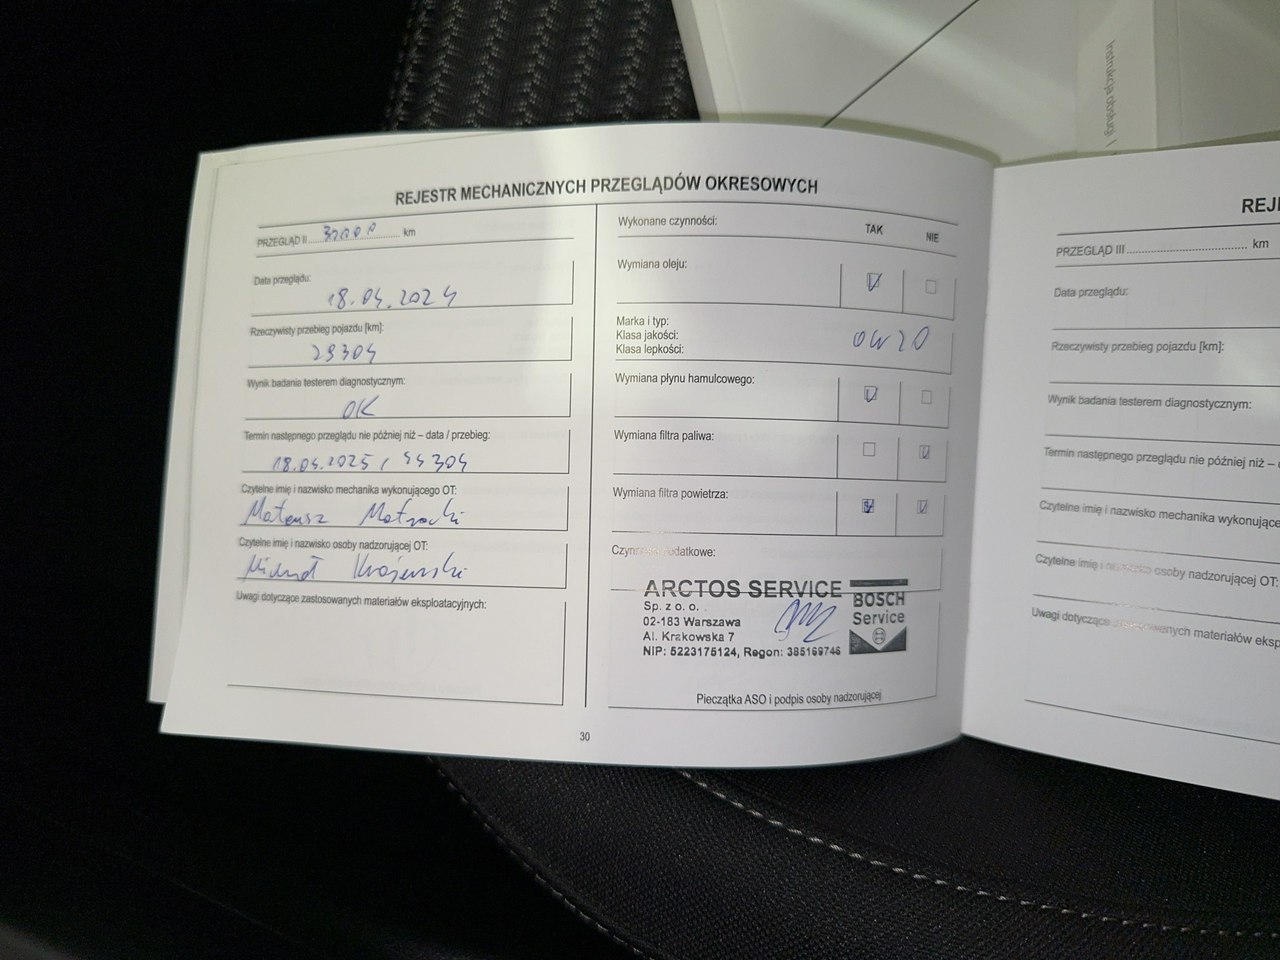 Instrukcja obsługi
REJESTR MECHANICZNYCH PRZEGLĄDÓW OKRESOWYCH
PRZEGLĄD II 30000 km
Data przeglądu:
18.04.2024
Rzeczywisty przebieg pojazdu [km]:
29304
Wynik badania testerem diagnostycznym:
OK
Termin następnego przeglądu nie później niż – data / przebieg:
18.04.2025 / 44304
Czytelne imię i nazwisko mechanika wykonującego OT:
Mateusz
Czytelne imię i nazwisko osoby nadzorującej OT:
Michał Krajewski
Uwagi dotyczące zastosowanych materiałów eksploatacyjnych:
Wykonane czynności: TAK NIE
Wymiana oleju:
Marka i typ:
Klasa jakości:
Klasa lepkości:
0W20
Wymiana płynu hamulcowego:
Wymiana filtra paliwa:
Wymiana filtra powietrza:
Czynności dodatkowe:
ARCTOS SERVICE
Sp. z o. o.
02-183 Warszawa
Al. Krakowska 7
NIP: 5223175124, Regon: 385169746
BOSCH
Service
Pieczątka ASO i podpis osoby nadzorującej
30
REJ
PRZEGLĄD III ........ km
Data przeglądu:
Rzeczywisty przebieg pojazdu [km]:
Wynik badania testerem diagnostycznym:
Termin następnego przeglądu nie później niż –
Czytelne imię i nazwisko mechanika wykonujące
Czytelne imię i nazwisko osoby nadzorującej OT:
Uwagi dotyczące zastosowanych materiałów eksp